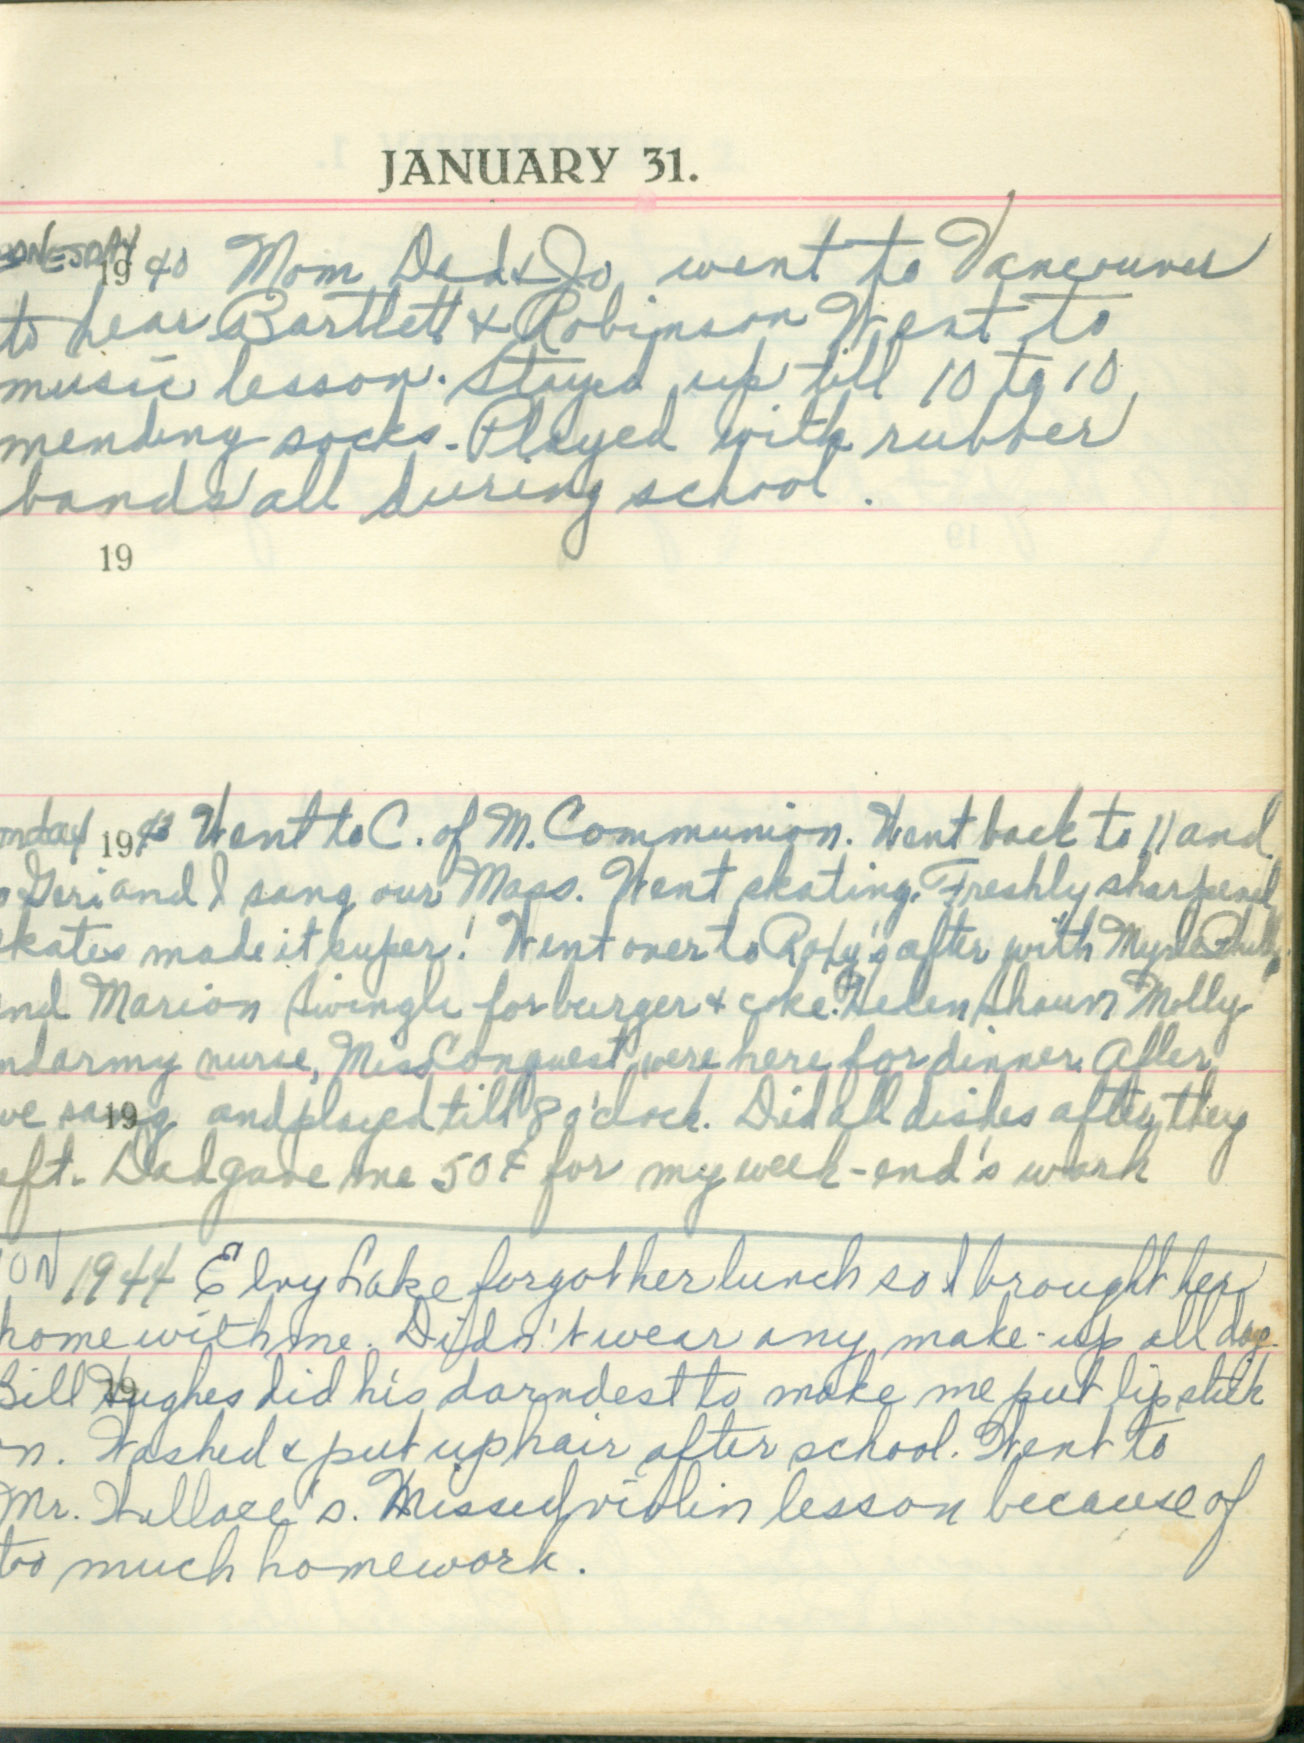 JANUARY 31.
19 40 Mom Dad & Jo went to Vancouver
to hear Bartlett & Robinson Went to
music lesson. Stayed up till 10 to 10
mending socks. Played with rubber
bands all during school.
19
19 43 Went to C. of M. Communion. Went back to 11 and
Geri and I sang our Mass. Went skating. Freshly sharpened
skates made it super! Went over to Roxy's after with
nd Marion Swingle for burger & coke. Helen Molly
nd army nurse, Miss Conquest were here for dinner. After
we sang and played till 8 o'clock. Did all dishes after they
19
eft. Dad gave me 50¢ for my week-end's work
ON 1944 Elvy Lake forgot her lunch so I brought her
home with me. Didn't wear any make-up all day.
Bill Hughes did his darndest to make me put lipstick
19
n. Washed & put up hair after school. Went to
Mr. Wallace's. Missed violin lesson because of
too much homework.